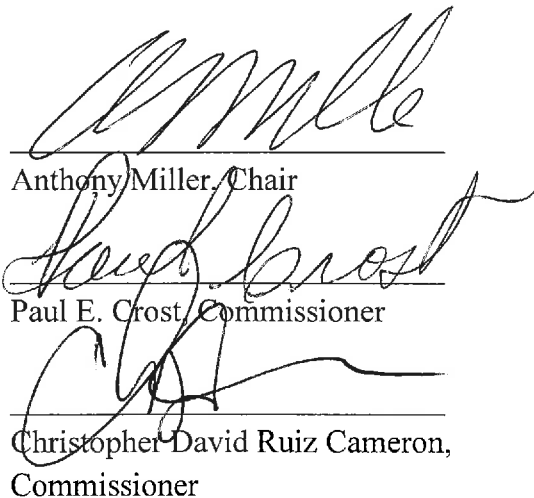 Anthony Miller, Chair
Paul E. Crost, Commissioner
Christopher David Ruiz Cameron,
Commissioner